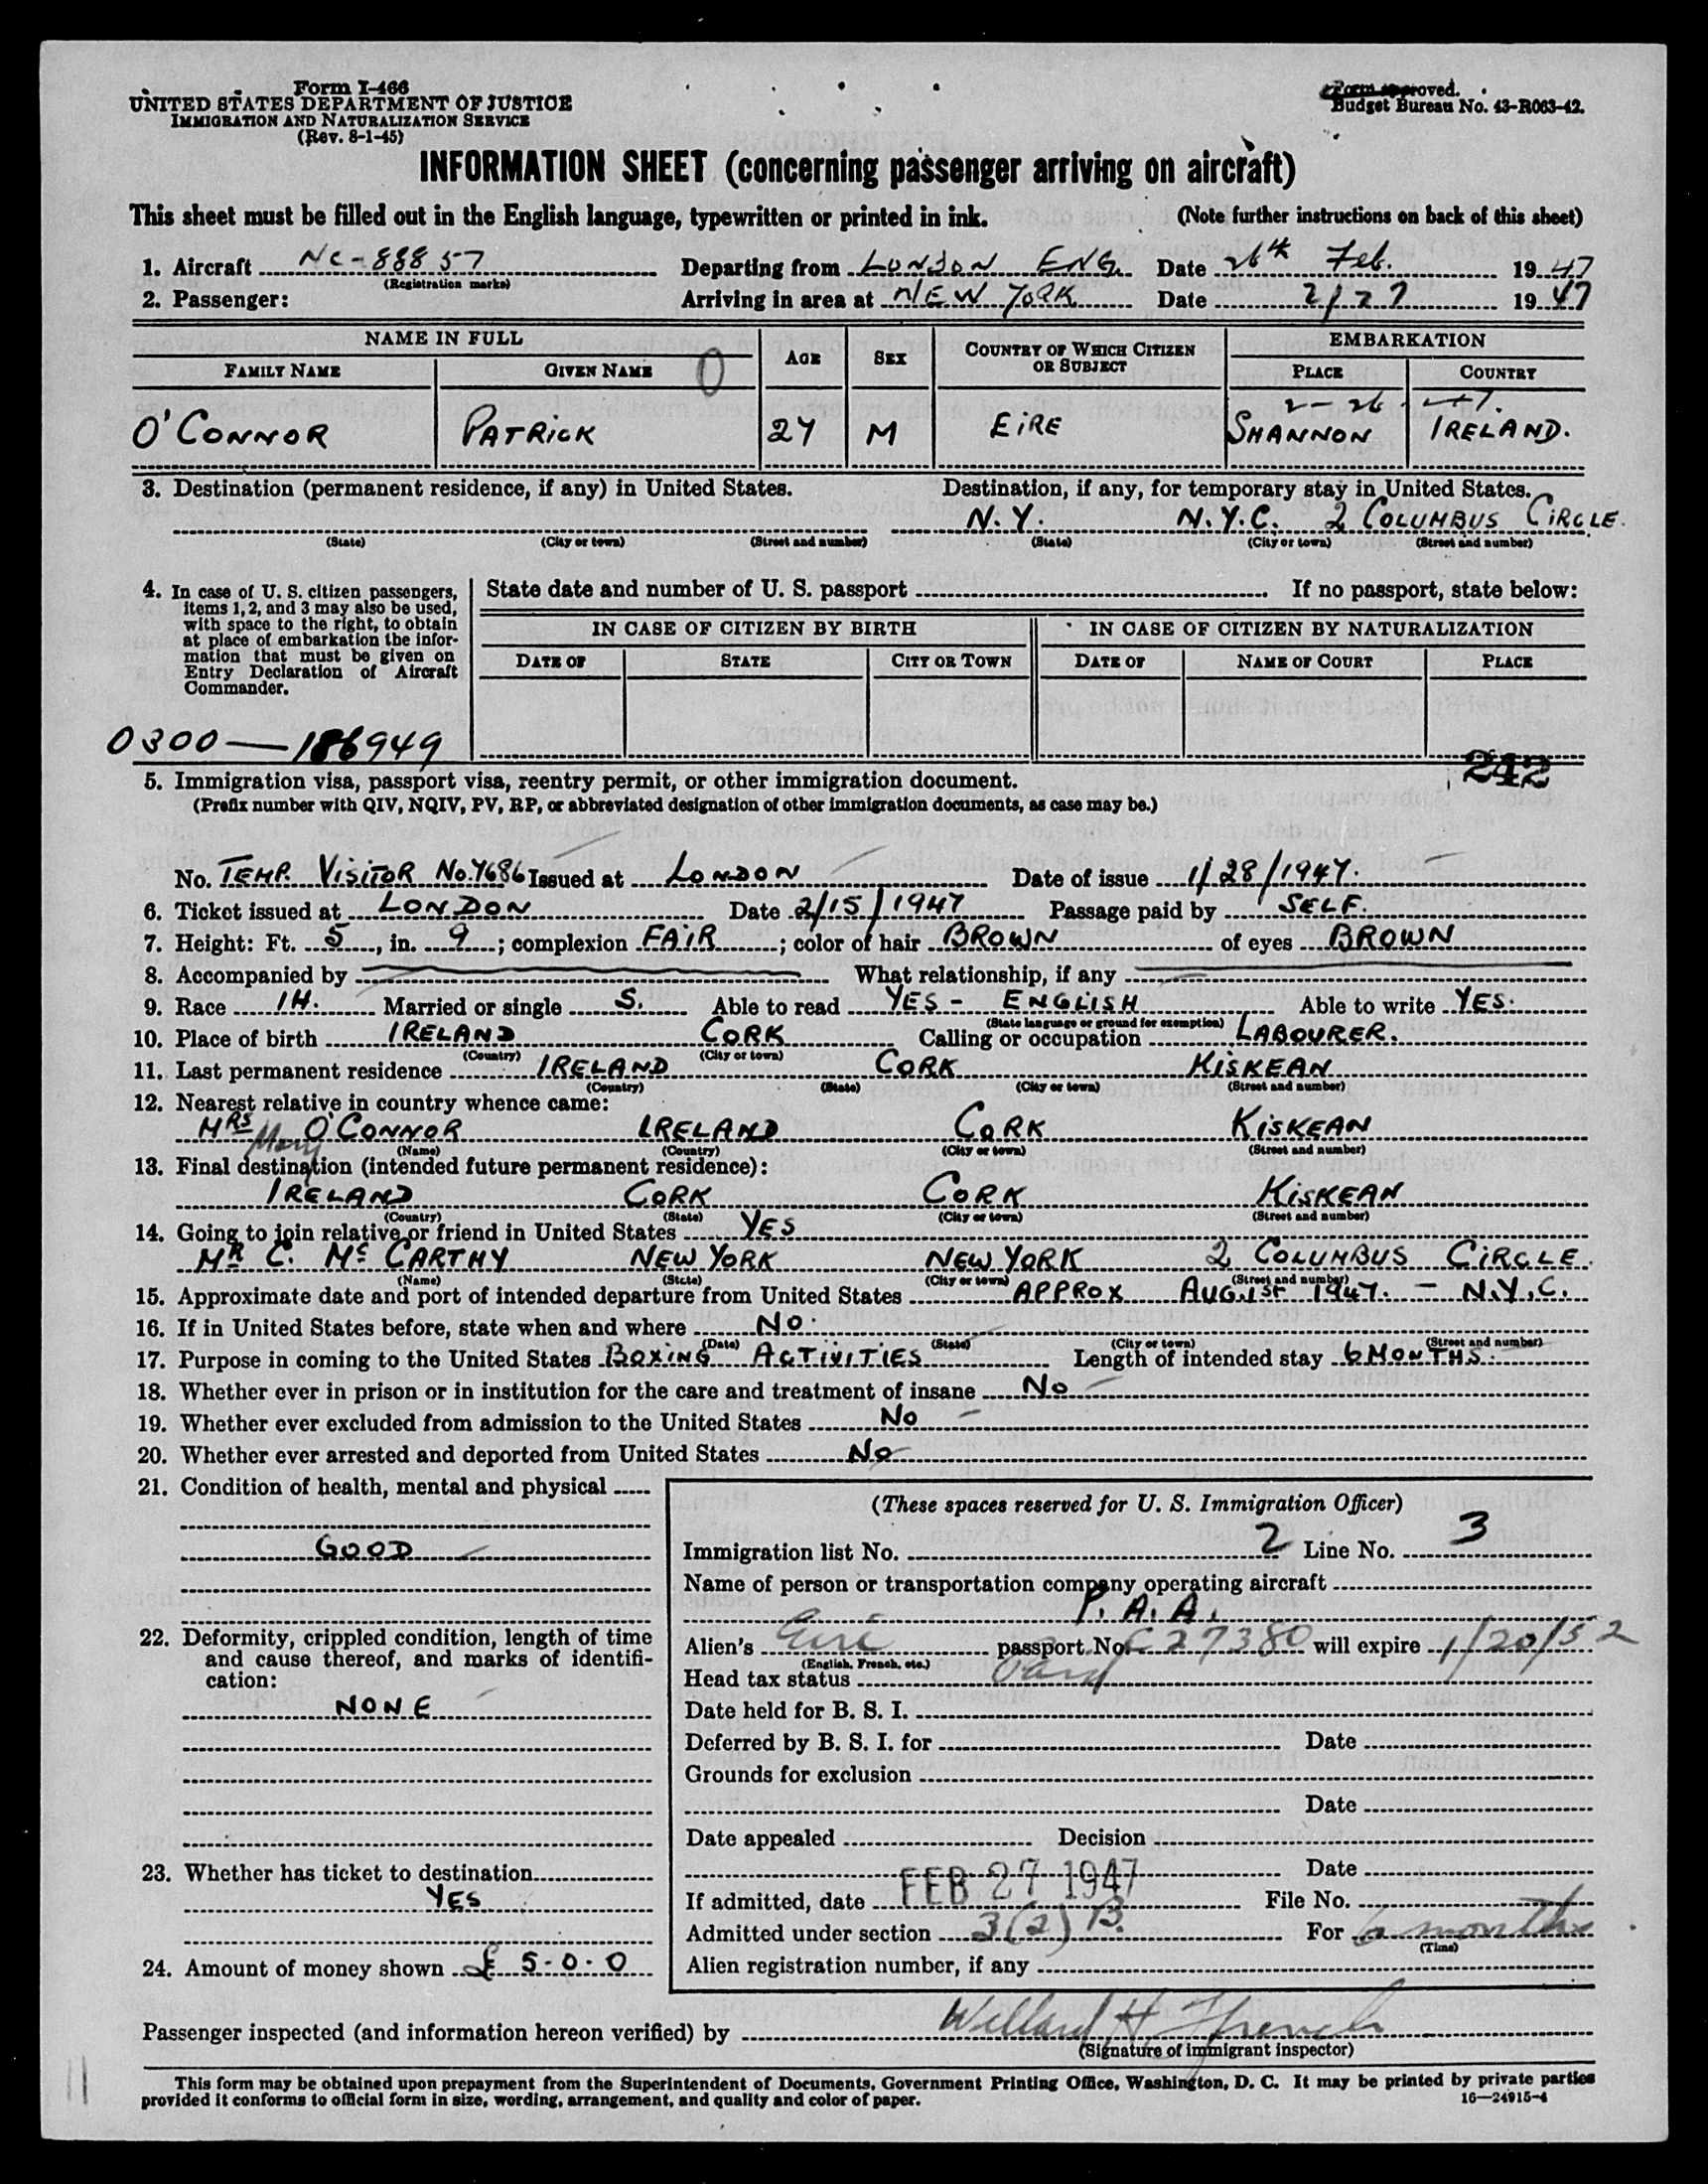 Form I-466
UNITED STATES DEPARTMENT OF JUSTICE
IMMIGRATION AND NATURALIZATION SERVICE
(Rev. 8-1-45)
Form approved.
Budget Bureau No. 43-R063-42.
INFORMATION SHEET (concerning passenger arriving on aircraft)
This sheet must be filled out in the English language, typewritten or printed in ink. (Note further instructions on back of this sheet)
1. Aircraft NC-88857 Departing from LONDON ENG. Date 26th Feb. 1947
(Registration marks)
2. Passenger: Arriving in area at NEW YORK Date 2/27 1947
NAME IN FULL AGE SEX COUNTRY OF WHICH CITIZEN OR SUBJECT EMBARKATION
FAMILY NAME GIVEN NAME O PLACE COUNTRY
2-26-47.
O'CONNOR PATRICK 24 M EIRE SHANNON IRELAND.
3. Destination (permanent residence, if any) in United States. Destination, if any, for temporary stay in United States.
N.Y. N.Y.C. 2 COLUMBUS CIRCLE.
(State) (City or town) (Street and number) (State) (City or town) (Street and number)
4. In case of U. S. citizen passengers, items 1, 2, and 3 may also be used, with space to the right, to obtain at place of embarkation the information that must be given on Entry Declaration of Aircraft Commander.
State date and number of U. S. passport If no passport, state below:
IN CASE OF CITIZEN BY BIRTH IN CASE OF CITIZEN BY NATURALIZATION
DATE OF STATE CITY OR TOWN DATE OF NAME OF COURT PLACE
0300—186949
242
5. Immigration visa, passport visa, reentry permit, or other immigration document.
(Prefix number with QIV, NQIV, PV, RP, or abbreviated designation of other immigration documents, as case may be.)
No. TEMP. VISITOR No. 4686 Issued at LONDON Date of issue 1/28/1947.
6. Ticket issued at LONDON Date 2/15/1947 Passage paid by SELF.
7. Height: Ft. 5, in. 9; complexion FAIR; color of hair BROWN of eyes BROWN
8. Accompanied by What relationship, if any
9. Race IH. Married or single S. Able to read YES - ENGLISH Able to write YES.
(State language or ground for exemption)
10. Place of birth IRELAND CORK Calling or occupation LABOURER.
(Country) (City or town)
11. Last permanent residence IRELAND CORK KISKEAN
(Country) (State) (City or town) (Street and number)
12. Nearest relative in country whence came:
MRS Mary O'CONNOR IRELAND CORK KISKEAN
(Name) (Country) (City or town) (Street and number)
13. Final destination (intended future permanent residence):
IRELAND CORK CORK KISKEAN
(Country) (State) (City or town) (Street and number)
14. Going to join relative or friend in United States YES
MR C. McCARTHY NEW YORK NEW YORK 2 COLUMBUS CIRCLE.
(Name) (State) (City or town) (Street and number)
15. Approximate date and port of intended departure from United States APPROX AUG. 1ST 1947. - N.Y.C.
16. If in United States before, state when and where NO.
(Date) (State) (City or town) (Street and number)
17. Purpose in coming to the United States BOXING ACTIVITIES Length of intended stay 6 MONTHS.
18. Whether ever in prison or in institution for the care and treatment of insane NO
19. Whether ever excluded from admission to the United States NO
20. Whether ever arrested and deported from United States NO
21. Condition of health, mental and physical
GOOD
22. Deformity, crippled condition, length of time and cause thereof, and marks of identification:
NONE
23. Whether has ticket to destination
YES
24. Amount of money shown £ 5-0-0
(These spaces reserved for U. S. Immigration Officer)
Immigration list No. 2 Line No. 3
Name of person or transportation company operating aircraft
P. A. A.
Alien's Eire passport No. C 27380 will expire 1/20/52
(English, French, etc.)
Head tax status Paid
Date held for B. S. I.
Deferred by B. S. I. for Date
Grounds for exclusion
Date
Date appealed Decision
Date
If admitted, date FEB 27 1947 File No.
Admitted under section 3(2)B. For 6 months.
(Time)
Alien registration number, if any
Passenger inspected (and information hereon verified) by Willard H. French
(Signature of immigrant inspector)
11
This form may be obtained upon prepayment from the Superintendent of Documents, Government Printing Office, Washington, D. C. It may be printed by private parties
provided it conforms to official form in size, wording, arrangement, and quality and color of paper. 16—24915-4